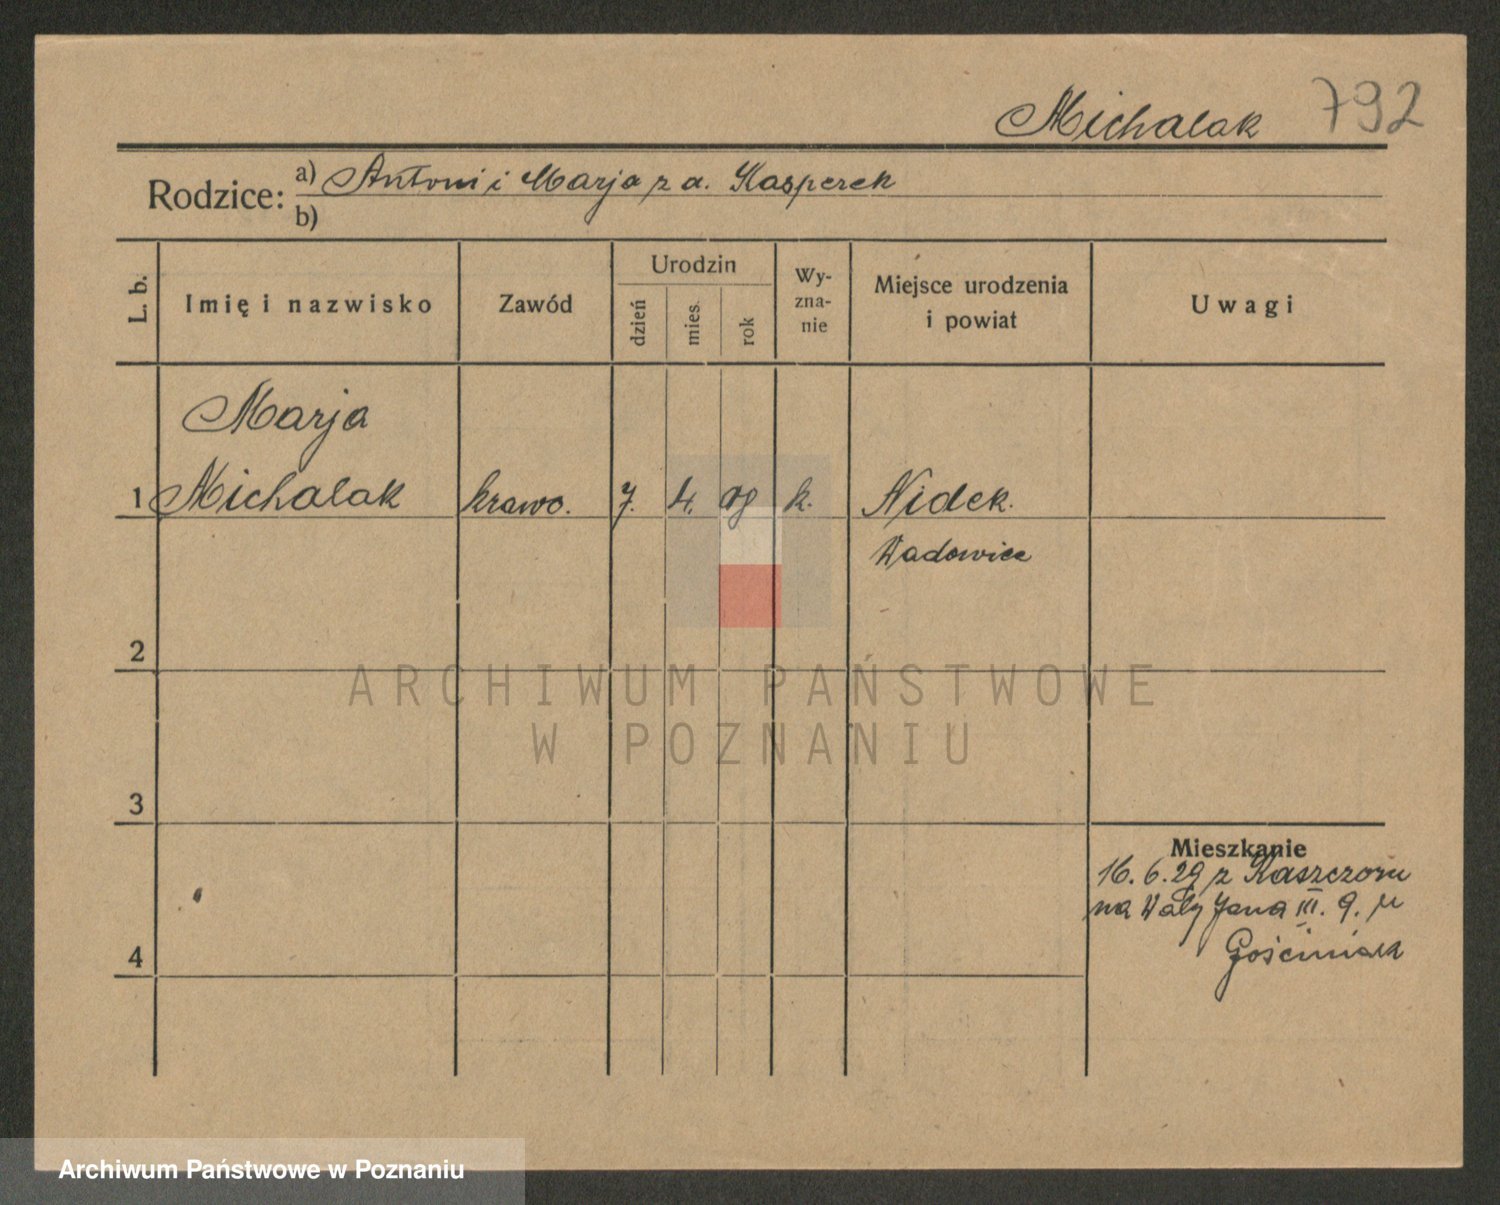 Michalak 792
Rodzice: a) Antoni i Marja z d. Kasperek
b)
L. b. Imię i nazwisko Zawód Urodzin dzień mies. rok Wyznanie Miejsce urodzenia i powiat Uwagi
Marja
1 Michalak krawc. 7. 4. 09 k. Nidek.
Wadowice
2
ARCHIWUM PAŃSTWOWE
W POZNANIU
3
Mieszkanie
16. 6. 29 z Kaszczoru
na Wały Jana III. 9. u
4 Gościniak
Archiwum Państwowe w Poznaniu